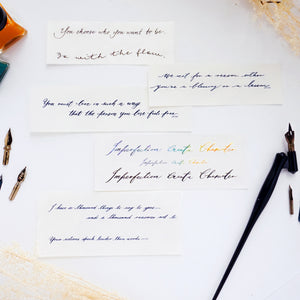 You choose who you want to be.
Go with the flow.
We met for a reason either
you're a blessing or a lesson.
You must love in such a way
that the person you love feels free.
Imperfection Creates Character
Imperfection Creates Character
Imperfection Creates Character
I have a thousand things to say to you
and a thousand reasons not to
Your actions speak louder than words